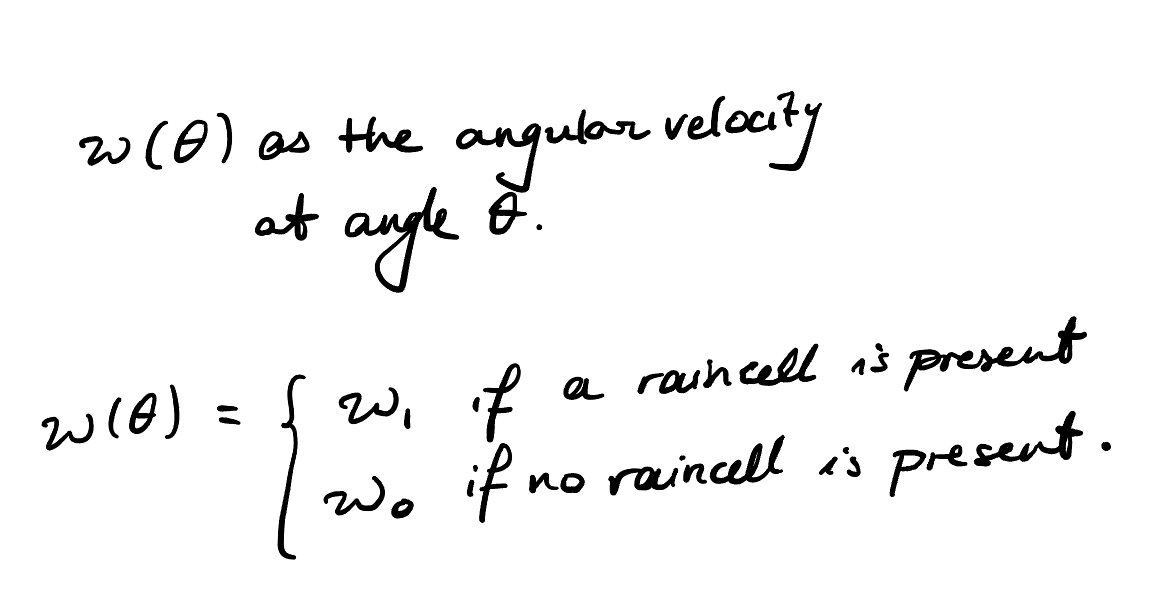 w(θ) as the angular velocity
at angle θ.
w(θ) = { w₁ if a raincell is present
w₀ if no raincell is present.